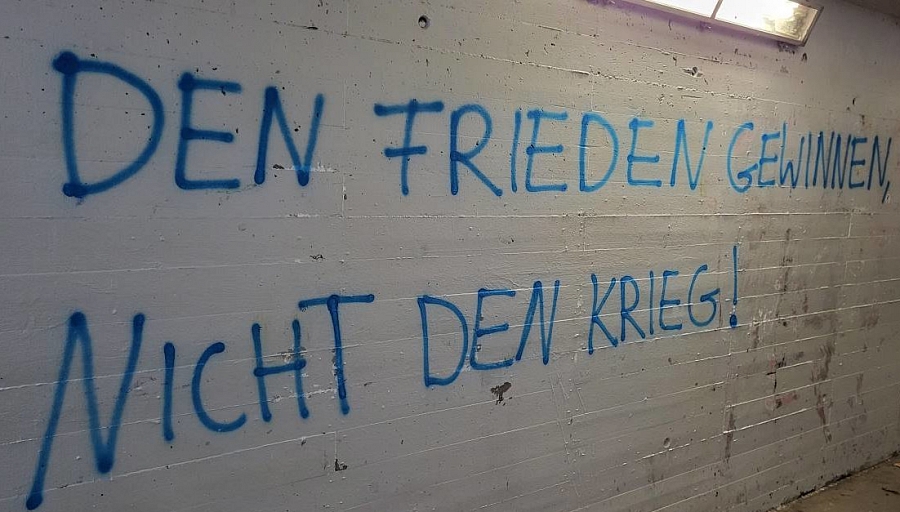 DEN FRIEDEN GEWINNEN,
NICHT DEN KRIEG!